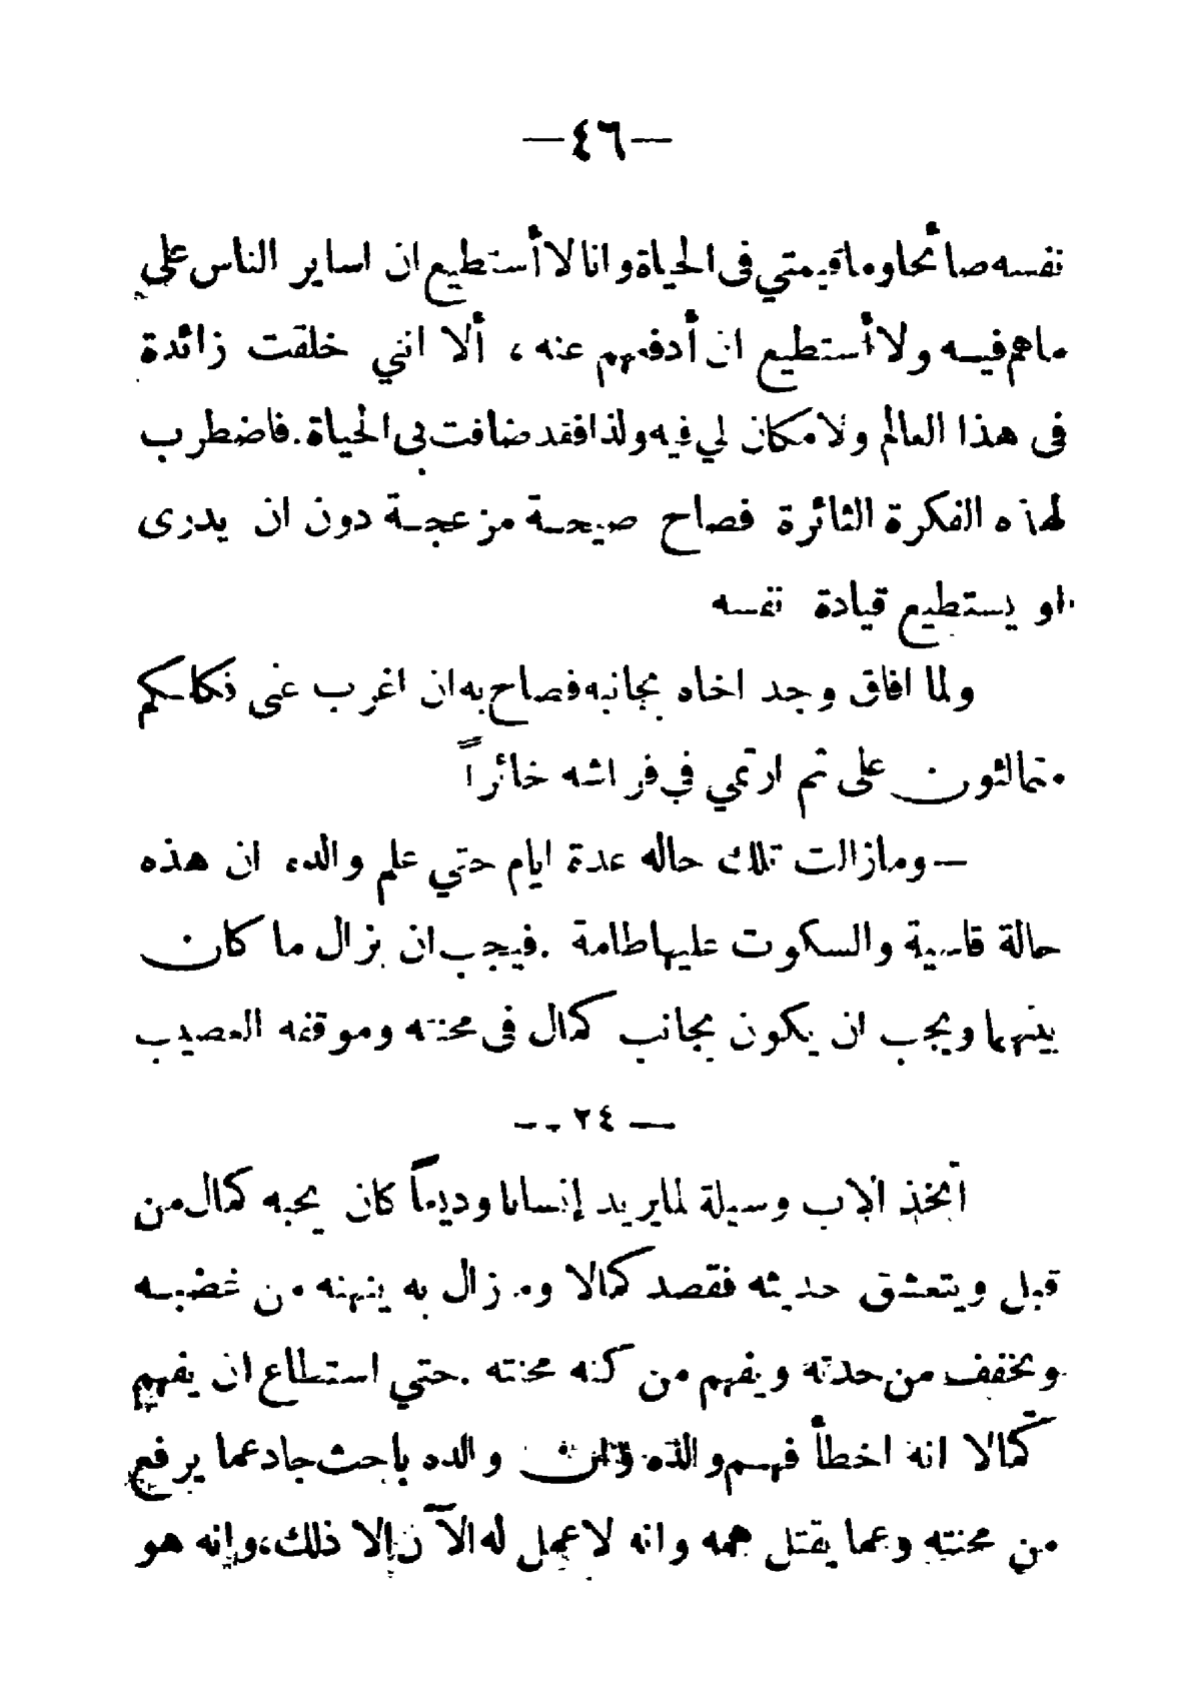 —٤٦—
نفسه صائحا وما قيمتي فى الحياة وانا لا أستطيع ان اساير الناس على
ما هم فيه ولا أستطيع ان أدفعهم عنه ، ألا انني خلقت زائدة
فى هذا العالم ولا مكان لي فيه ولذا فقد ضاقت بى الحياة . فاضطرب
لهذه الفكرة الثائرة فصاح صيحة مزعجة دون ان يدرى
او يستطيع قيادة نفسه
ولما افاق وجد اخاه بجانبه فصاح به ان اغرب عنى فكلكم
متمالئون على ثم ارتمي في فراشه خائراً
— ومازالت تلك حاله عدة ايام حتي علم والده ان هذه
حالة قاسية والسكوت عليها طامة . فيجب ان يزال ما كان
بينهما ويجب ان يكون بجانب كمال فى محنته وموقفه العصيب
— ٢٤ —
اتخذ الاب وسيلة لما يريد إنسانا وديعاً كان يحبه كمال من
قبل ويتعشق حديثه فقصد كمالا وما زال به ينهنه من غضبه
ويخفف من حدته ويفهم من كنه محنته . حتي استطاع ان يفهم
كمالا انه اخطأ فهم والده وان والده باحث جاد عما يرفع
من محنته وعما يقتل همه وانه لا عمل له الآن إلا ذلك ، وإنه هو